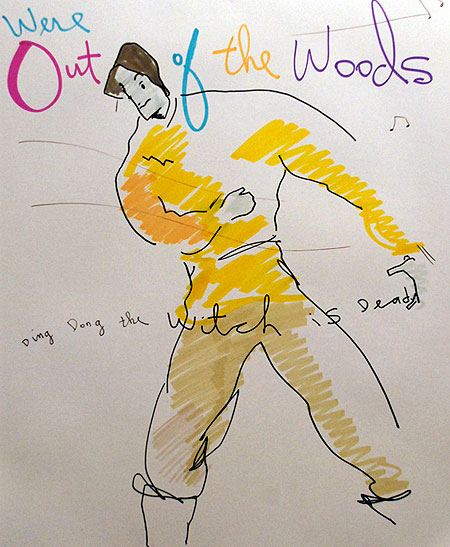 Were
Out of the Woods
Ding Dong the Witch is Dead